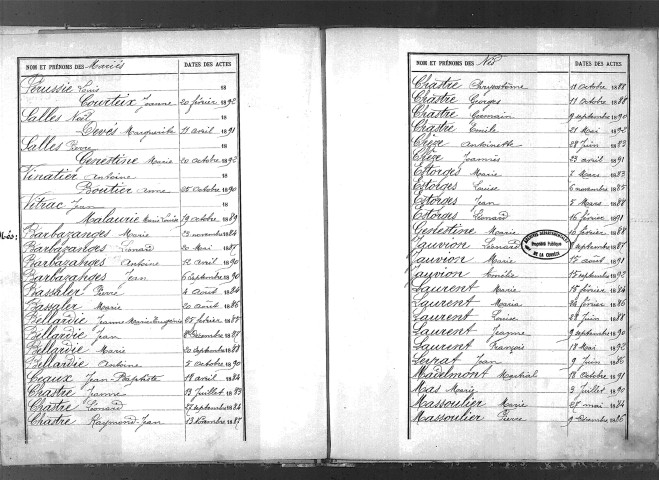 NOM ET PRÉNOMS DES Mariés DATES DES ACTES
Perussie Louis 18
Courteix Jeanne 20 février 1892
Salles Noël 18
Devés Marguerite 11 avril 1891
Salles Pierre 18
Genestine Marie 20 octobre 1892
Tinatier Antoine
Boutier Anne 25 octobre 1890
Vitrac Jean 18
Malaurie Marie Louise 19 octobre 1889
Nés: Barbazanges Marie 23 novembre 1884
Barbazanges Léonard 20 Mai 1887
Barbazanges Antoine 12 avril 1890
Barbazanges Jean 6 septembre 1890
Bassaler Pierre 4 août 1884
Bassaler Marie 20 août 1886
Billardie Jeanne Marie Eugénie 25 février 1885
Billardie Jean Décembre 1887
Billardie Marie 20 septembre 1888
Billardie Antoine 5 octobre 1890
Ceaux Jean-Baptiste 18 avril 1884
Chastre Jeanne 13 Juillet 1883
Chastre Léonard 27 septembre 1884
Chastre Raymond-Jean 13 Novembre 1887
NOM ET PRÉNOMS DES Nés DATES DES ACTES
Chastre Chrysostome 11 octobre 1888
Chastre Georges 11 octobre 1888
Chastre Germain 9 septembre 1890
Chastre Emile 21 Mai 1892
Chèze Antoinette 28 Juin 1883
Chèze Jeannès 23 avril 1891
Estorges Marie 7 Mars 1883
Estorges Louise 6 novembre 1885
Estorges Jean 5 Mars 1888
Estorges Léonard 16 février 1891
Genestine Marie 16 février 1888
Jauvion Léonard septembre 1887
Jauvion Marie 15 août 1891
Jauvion Amélie 15 septembre 1892
Laurent Marie 15 février 1884
Laurent Maria 24 février 1886
Laurent Louise 28 Juin 1888
Laurent Jeanne 9 septembre 1890
Laurent François 18 Mai 1892
Leyrat Jean 9 Juin 1886
Madelmont Martial 18 octobre 1891
Mas Marie 3 Juillet 1890
Massoulier Marie 27 mai 1884
Massoulier Pierre 9 décembre 1886
ARCHIVES DÉPARTEMENTALES
Propriété Publique
DE LA CORRÈZE